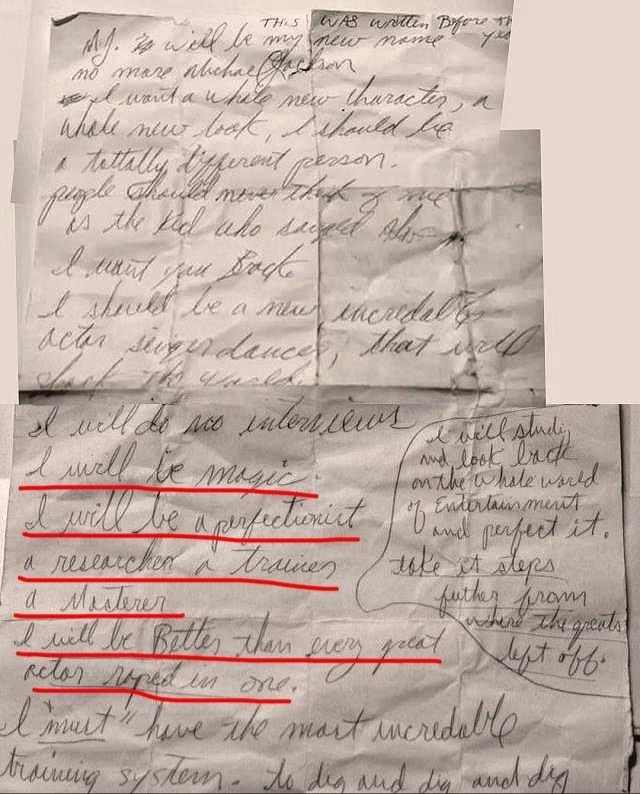 THIS WAS written Before the
MJ. is will be my new name yes
no more Michael Jackson
I want a whole new character, a
whole new look, I should be
a tottally different person.
people should never think of me
as the kid who sanged
I want you Back
I should be a new incredable
actor singer dancer, that will
shock the world.
I will do no interviews
I will be magic.
I will be a perfectionist
a researcher a trainer
a Masterer
I will be Better than every great
actor roped in one.
I "must" have the most incredable
training system. to dig and dig and dig
I will study
and look back
on the whole world
of Entertainment
and perfect it.
take it steps
futher from
where the greats
left off.